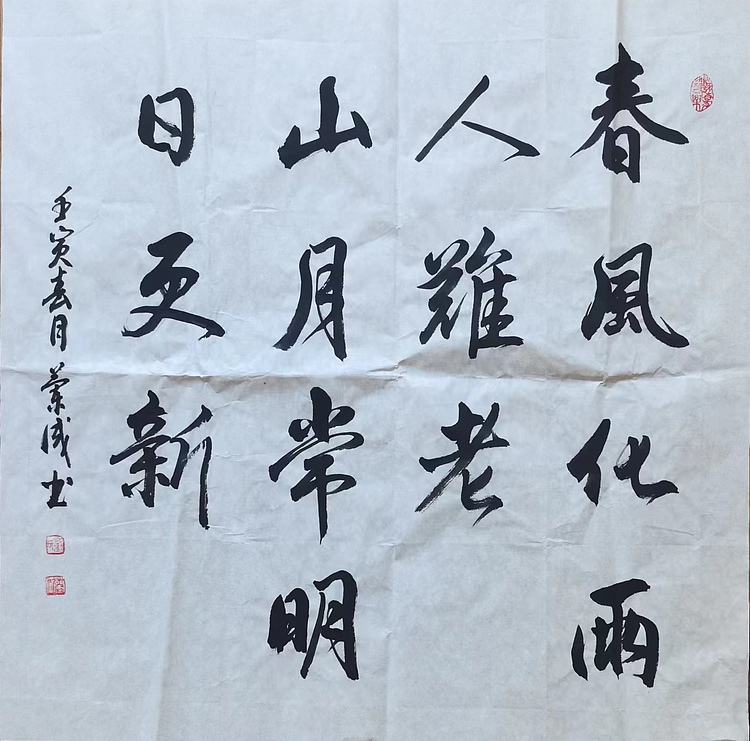 春風化雨
人難老
山月常明
日更新
壬寅春月 榮成书